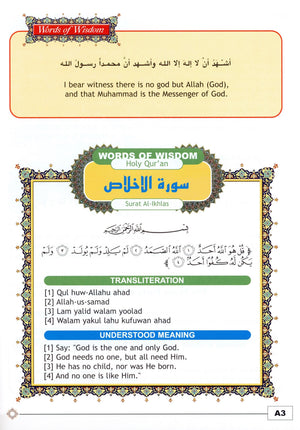 Words of Wisdom
أشهد أنْ لا إله إلا الله وأشهد أنّ محمداً رسول الله
I bear witness there is no god but Allah (God),
and that Muhammad is the Messenger of God.
WORDS OF WISDOM
Holy Qur'an
سورة الإخلاص
Surat Al-Ikhlas
بسم الله الرحمن الرحيم
قُلْ هُوَ اللَّهُ أَحَدٌ ١ اللَّهُ الصَّمَدُ ٢ لَمْ يَلِدْ وَلَمْ يُولَدْ ٣ وَلَمْ
يَكُن لَّهُ كُفُوًا أَحَدٌ ٤
TRANSLITERATION
[1] Qul huw-Allahu ahad
[2] Allah-us-samad
[3] Lam yalid walam yoolad
[4] Walam yakul lahu kufuwan ahad
UNDERSTOOD MEANING
[1] Say: "God is the one and only God.
[2] God needs no one, but all need Him.
[3] He has no child, nor was He born.
[4] And no one is like Him."
A3